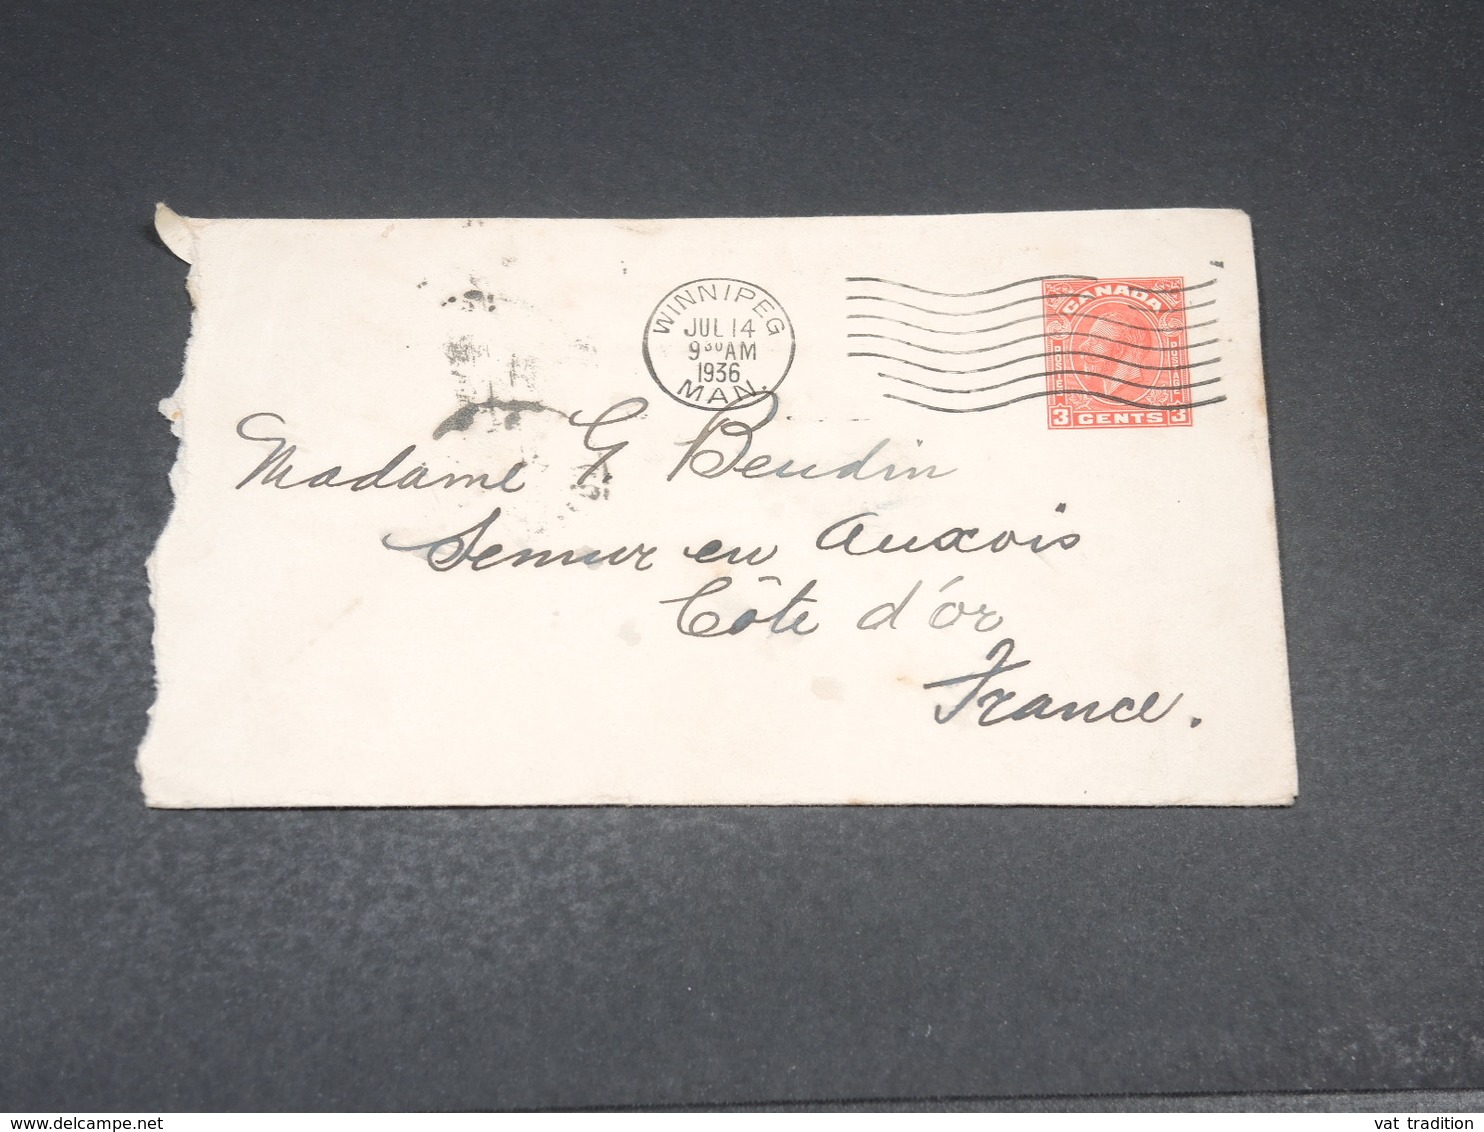 WINNIPEG
JUL 14
9³⁰AM
1936
MAN.
CANADA
POSTES
POSTAGE
3 CENTS 3
Madame G. Beudin
Semur en Auxois
Côte d'or
France.
delcampe.net
vat tradition